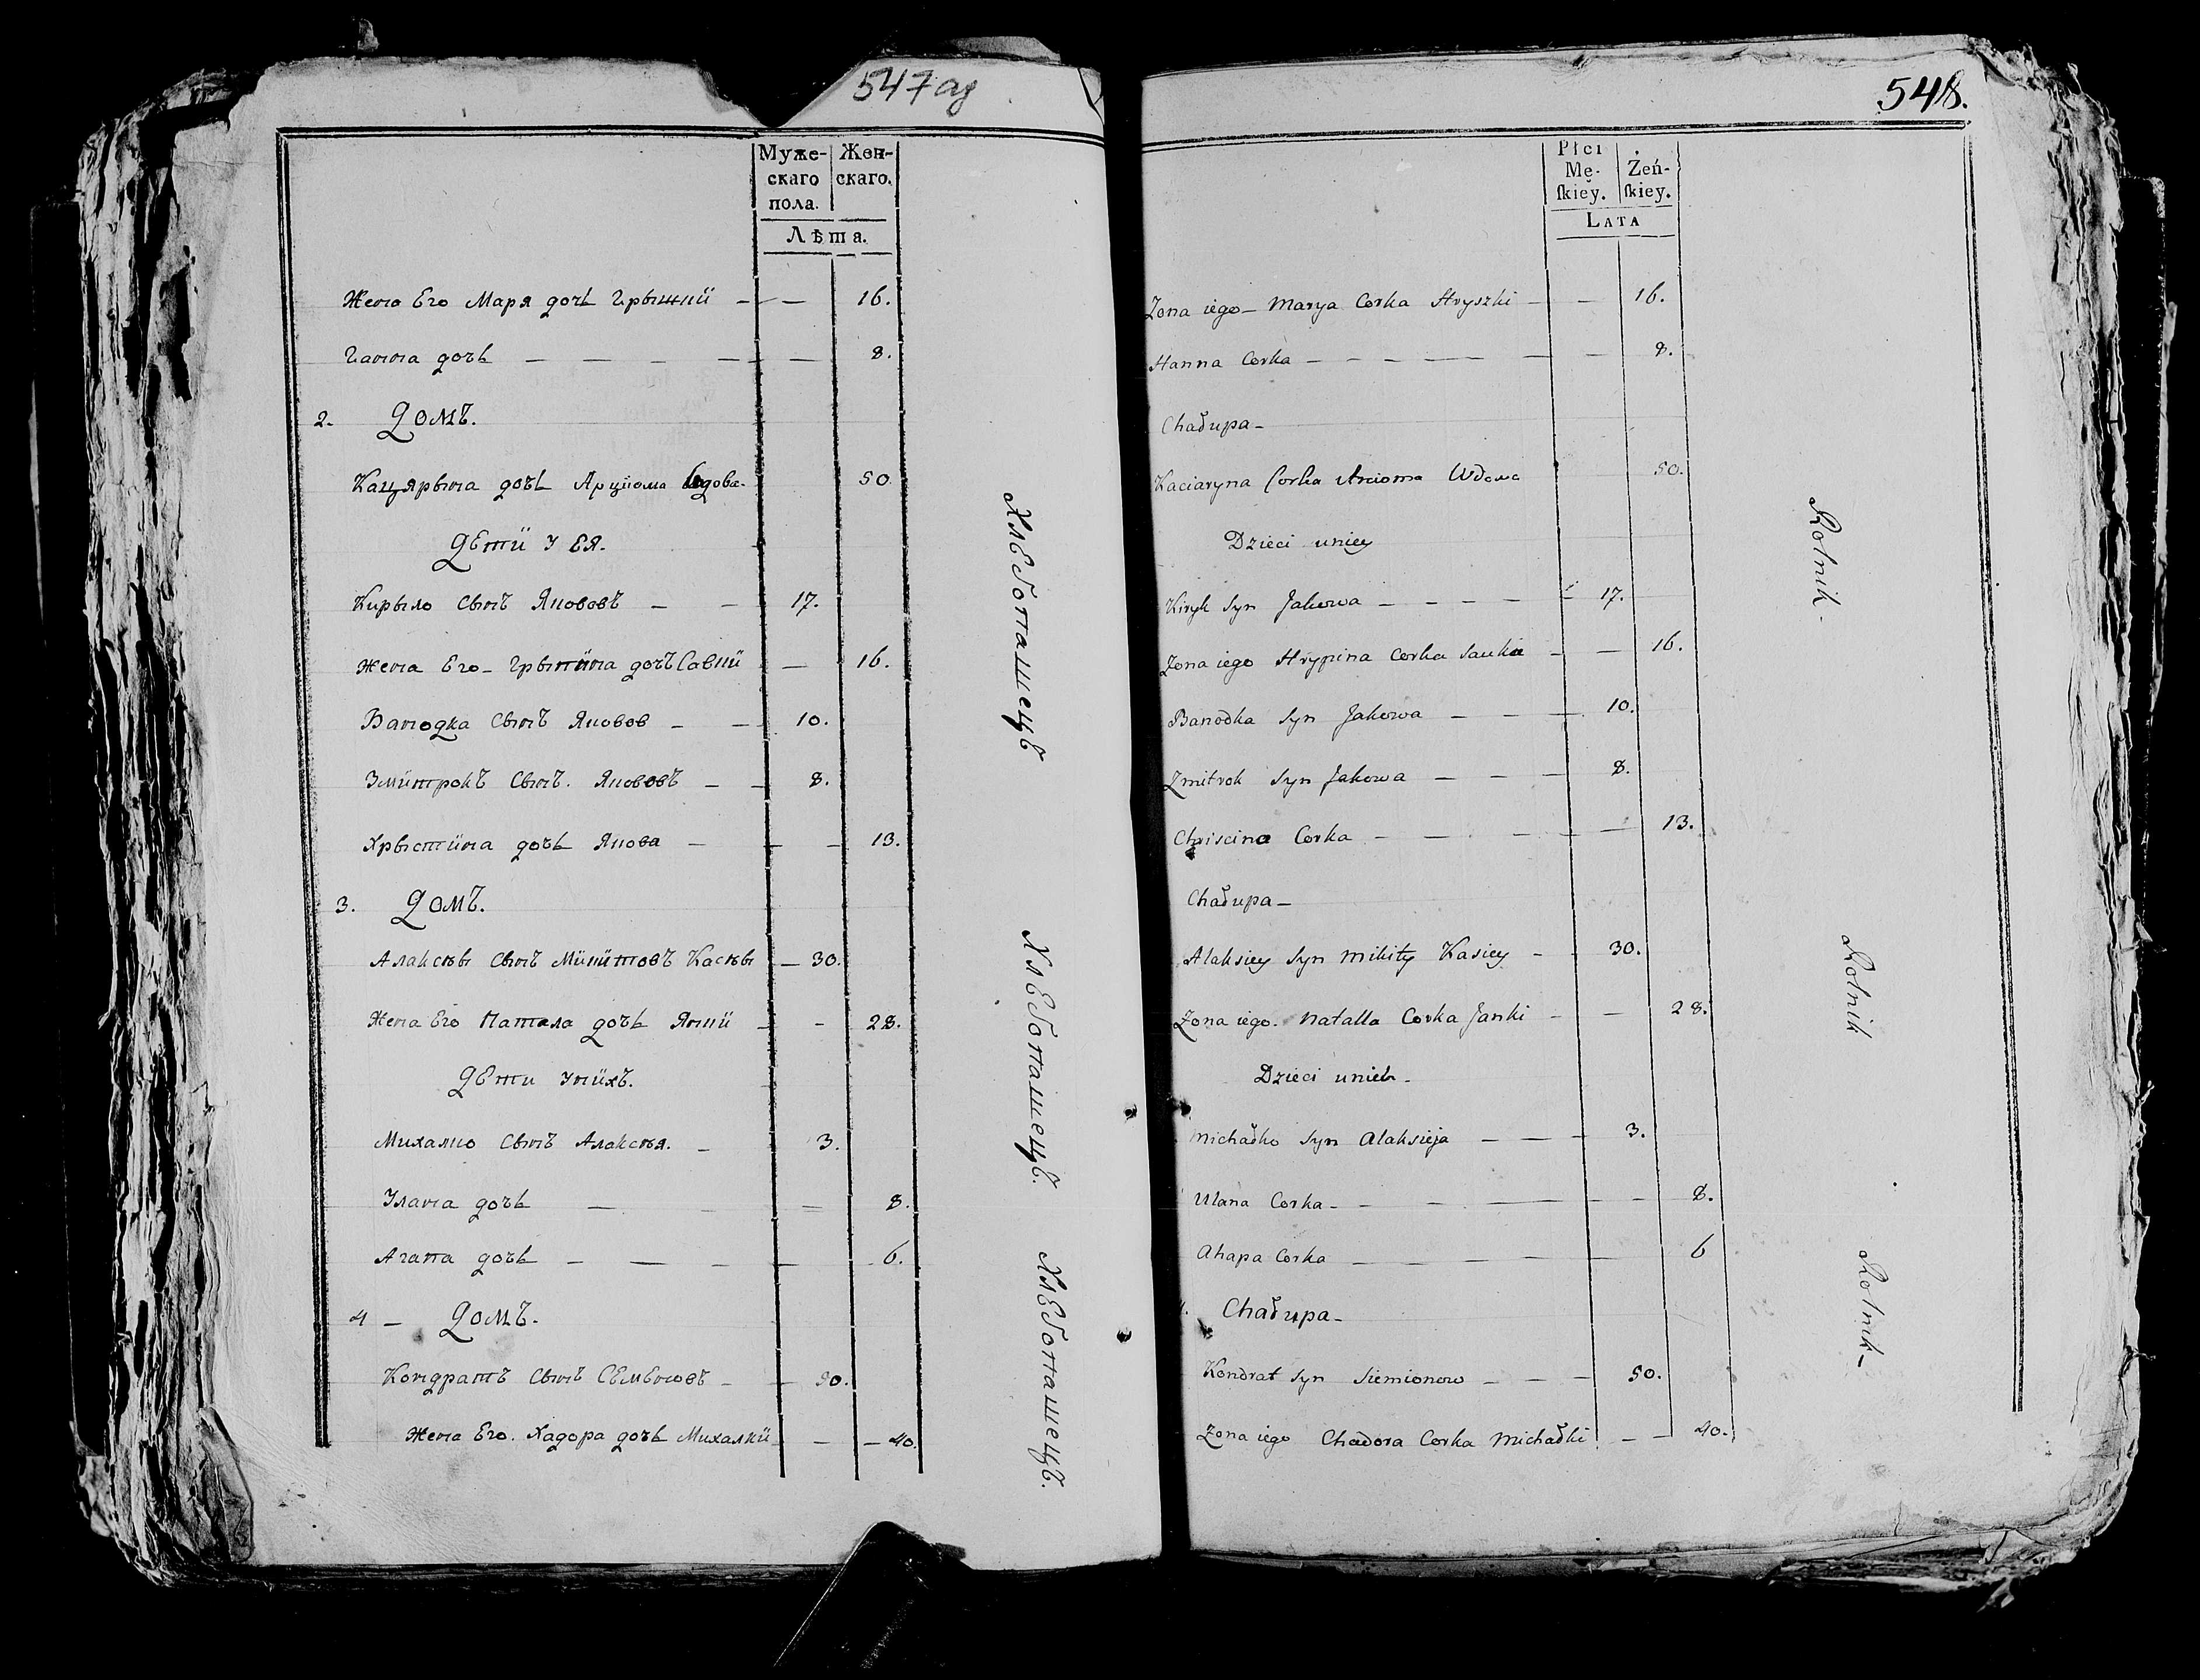 547 ад
Муже- Жен-
скаго скаго.
пола.
Лѣта.
Жена Его Маря дочь Грышки — — 16.
Ганна дочь — — — — — — 8.
2. Домъ.
Кацярына дочь Арціома Вдова - 50
Дети у ея.
Кирыло сынъ Якововъ — — 17.
Жена Его - Грыпина дочъ Савки — 16.
Банодка сынъ Яковов — — 10.
Змитрокъ сынъ. Якововъ — — 8.
Хрыстина дочь Якова — — — 13.
3. Домъ.
Алаксѣы сынъ Микитовъ Касѣы — 30.
Жена Его Натала дочь Янки — - 28.
Дети у нихъ.
Михалко сынъ Алаксѣя. — 3.
Улана дочь — — — — 8.
Агапа дочь — — — — 6.
4 — Домъ.
Кондратъ сынъ Сѣменовъ — — 50.
Жена Его. Хадора дочь Михалки — — — 40.
Хлебопашецъ
Хлебопашецъ.
Хлебопашецъ.
548.
Płci
Mę- Żeń-
ſkiey. ſkiey.
LATA
Zona iego — Marya Corka Hryszki — — 16.
Hanna Corka — — — — — — 8.
Chałupa —
Kaciaryna Corka Arcioma Wdowa 50.
Dzieci uniey
Kiryk Syn Jakowa — — — — 17.
Zona iego Hrypina Corka Sauki — — 16.
Banodka Syn Jakowa — — — 10.
Zmitrok Syn Jakowa — — — 8.
Chriscina Corka — — — — — 13.
Chałupa —
Alaksiey Syn Mikity Kasiey — - 30.
Zona iego. Natalla Corka Janki — — 28.
Dzieci unich -
Michałko Syn Alaksieja — — — 3.
Ulana Corka - — — — — — 8.
Ahapa Corka — — — — — 6
Chałupa —
Kondrat Syn Siemionow — — — 50.
Zona iego Chadora Corka Michałki — — 40.
Rolnik -
Rolnik
Rolnik —